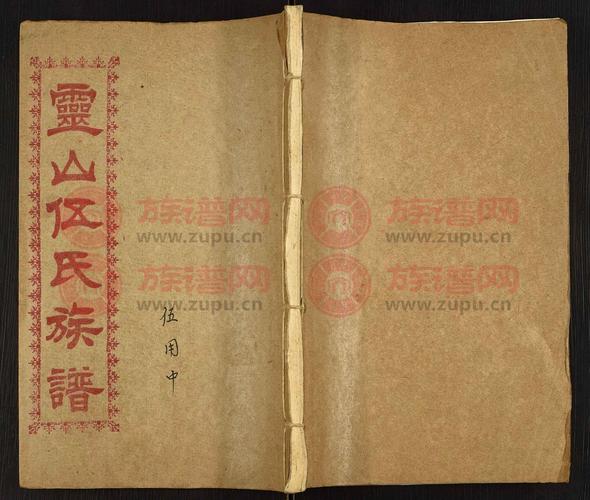 靈山伍氏族譜
伍用中
族谱网
www.zupu.cn
族谱网
www.zupu.cn
族谱网
www.zupu.cn
族谱网
www.zupu.cn